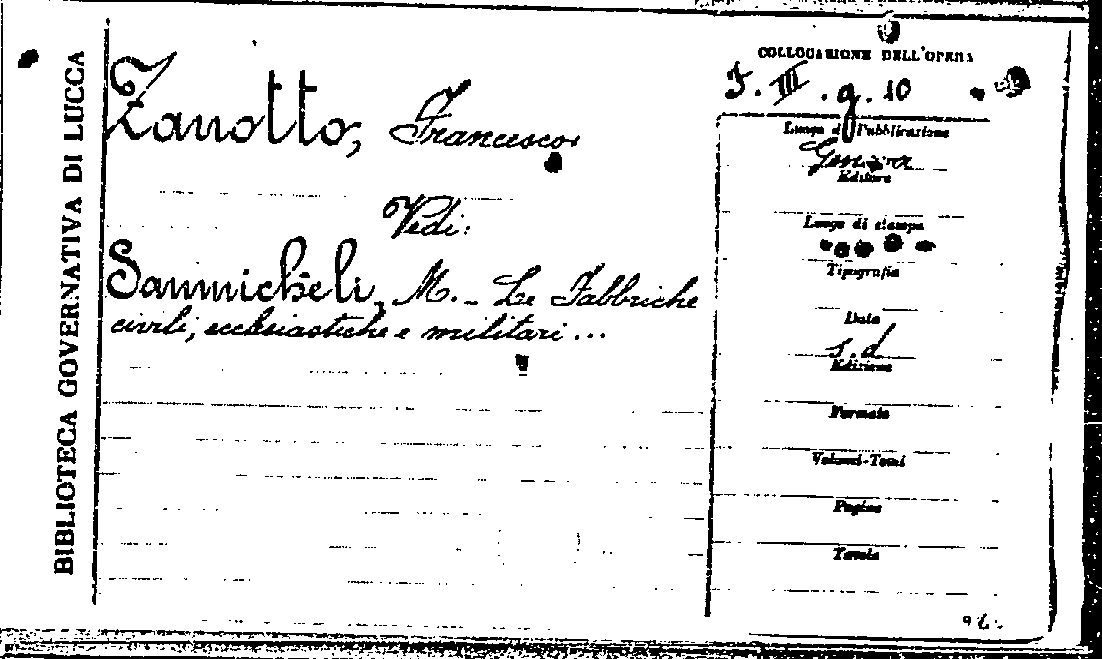 BIBLIOTECA GOVERNATIVA DI LUCCA
Zanotto, Francesco
Vedi:
Sanmicheli, M. - Le Fabbriche
civili, ecclesiastiche e militari...
COLLOCAZIONE DELL'OPERA
F. III. g. 10
Luogo di Pubblicazione
Genova
Editore
Luogo di stampa
Tipografia
Data
s.d
Edizione
Formato
Volumi-Tomi
Pagine
Tavole